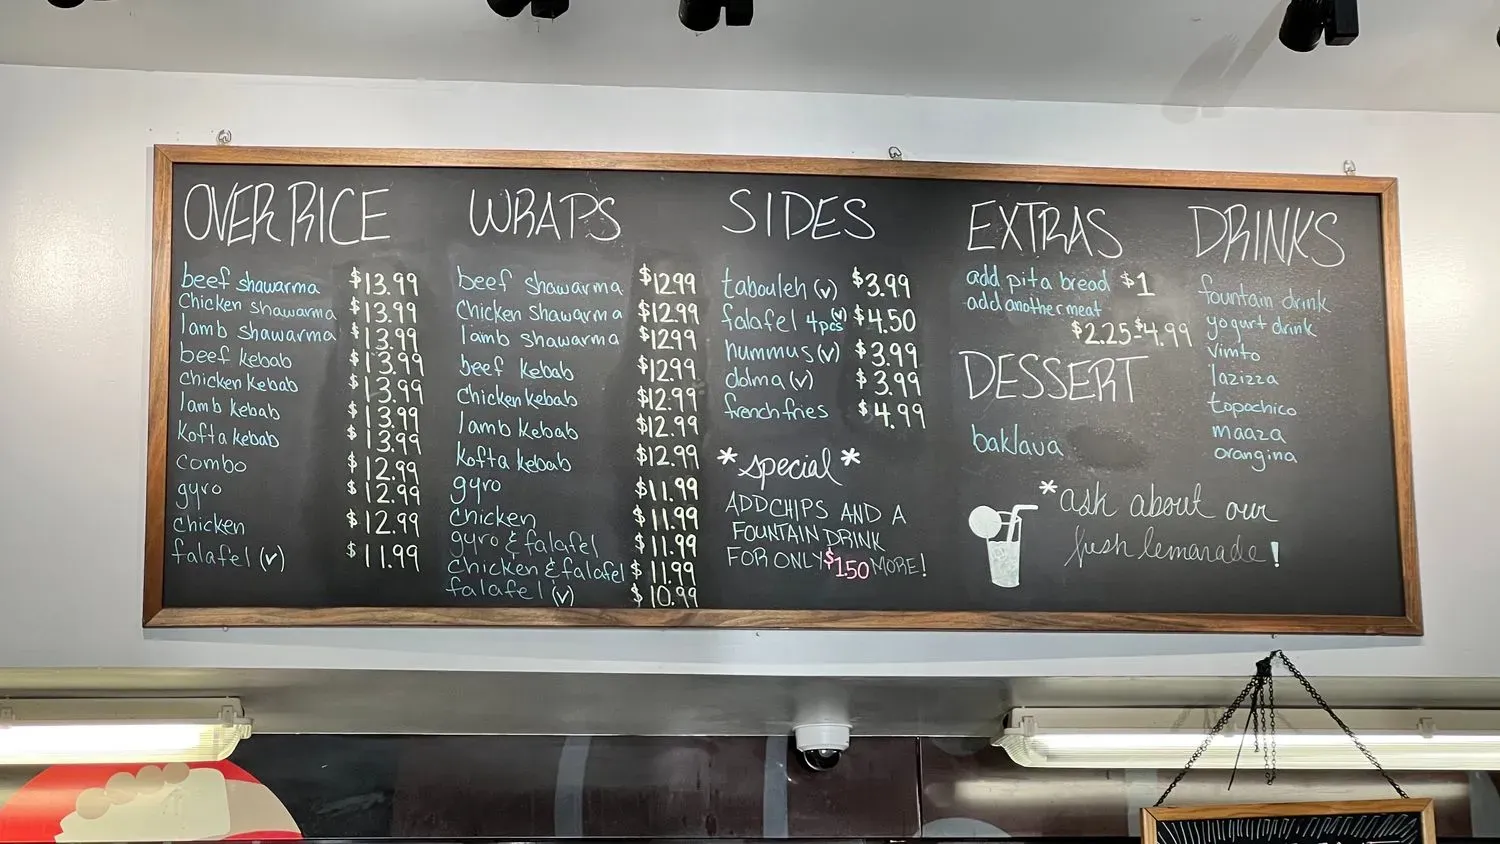 OVER RICE
beef shawarma $13.99
Chicken shawarma $13.99
lamb shawarma $13.99
beef kebab $13.99
chicken kebab $13.99
lamb kebab $13.99
kofta kebab $13.99
combo $12.99
gyro $12.99
chicken $12.99
falafel (v) $11.99
WRAPS
beef shawarma $12.99
Chicken shawarma $12.99
lamb shawarma $12.99
beef kebab $12.99
Chicken kebab $12.99
lamb kebab $12.99
kofta kebab $12.99
gyro $11.99
chicken $11.99
gyro & falafel $11.99
chicken & falafel $11.99
falafel (v) $10.99
SIDES
tabouleh (v) $3.99
falafel 4pcs (v) $4.50
hummus (v) $3.99
dolma (v) $3.99
french fries $4.99
*special*
ADD CHIPS AND A
FOUNTAIN DRINK
FOR ONLY $1.50 MORE!
EXTRAS
add pita bread $1
add another meat
$2.25-$4.99
DESSERT
baklava
DRINKS
fountain drink
yogurt drink
vimto
lazizza
topochico
maaza
orangina
*ask about our
fresh lemonade!